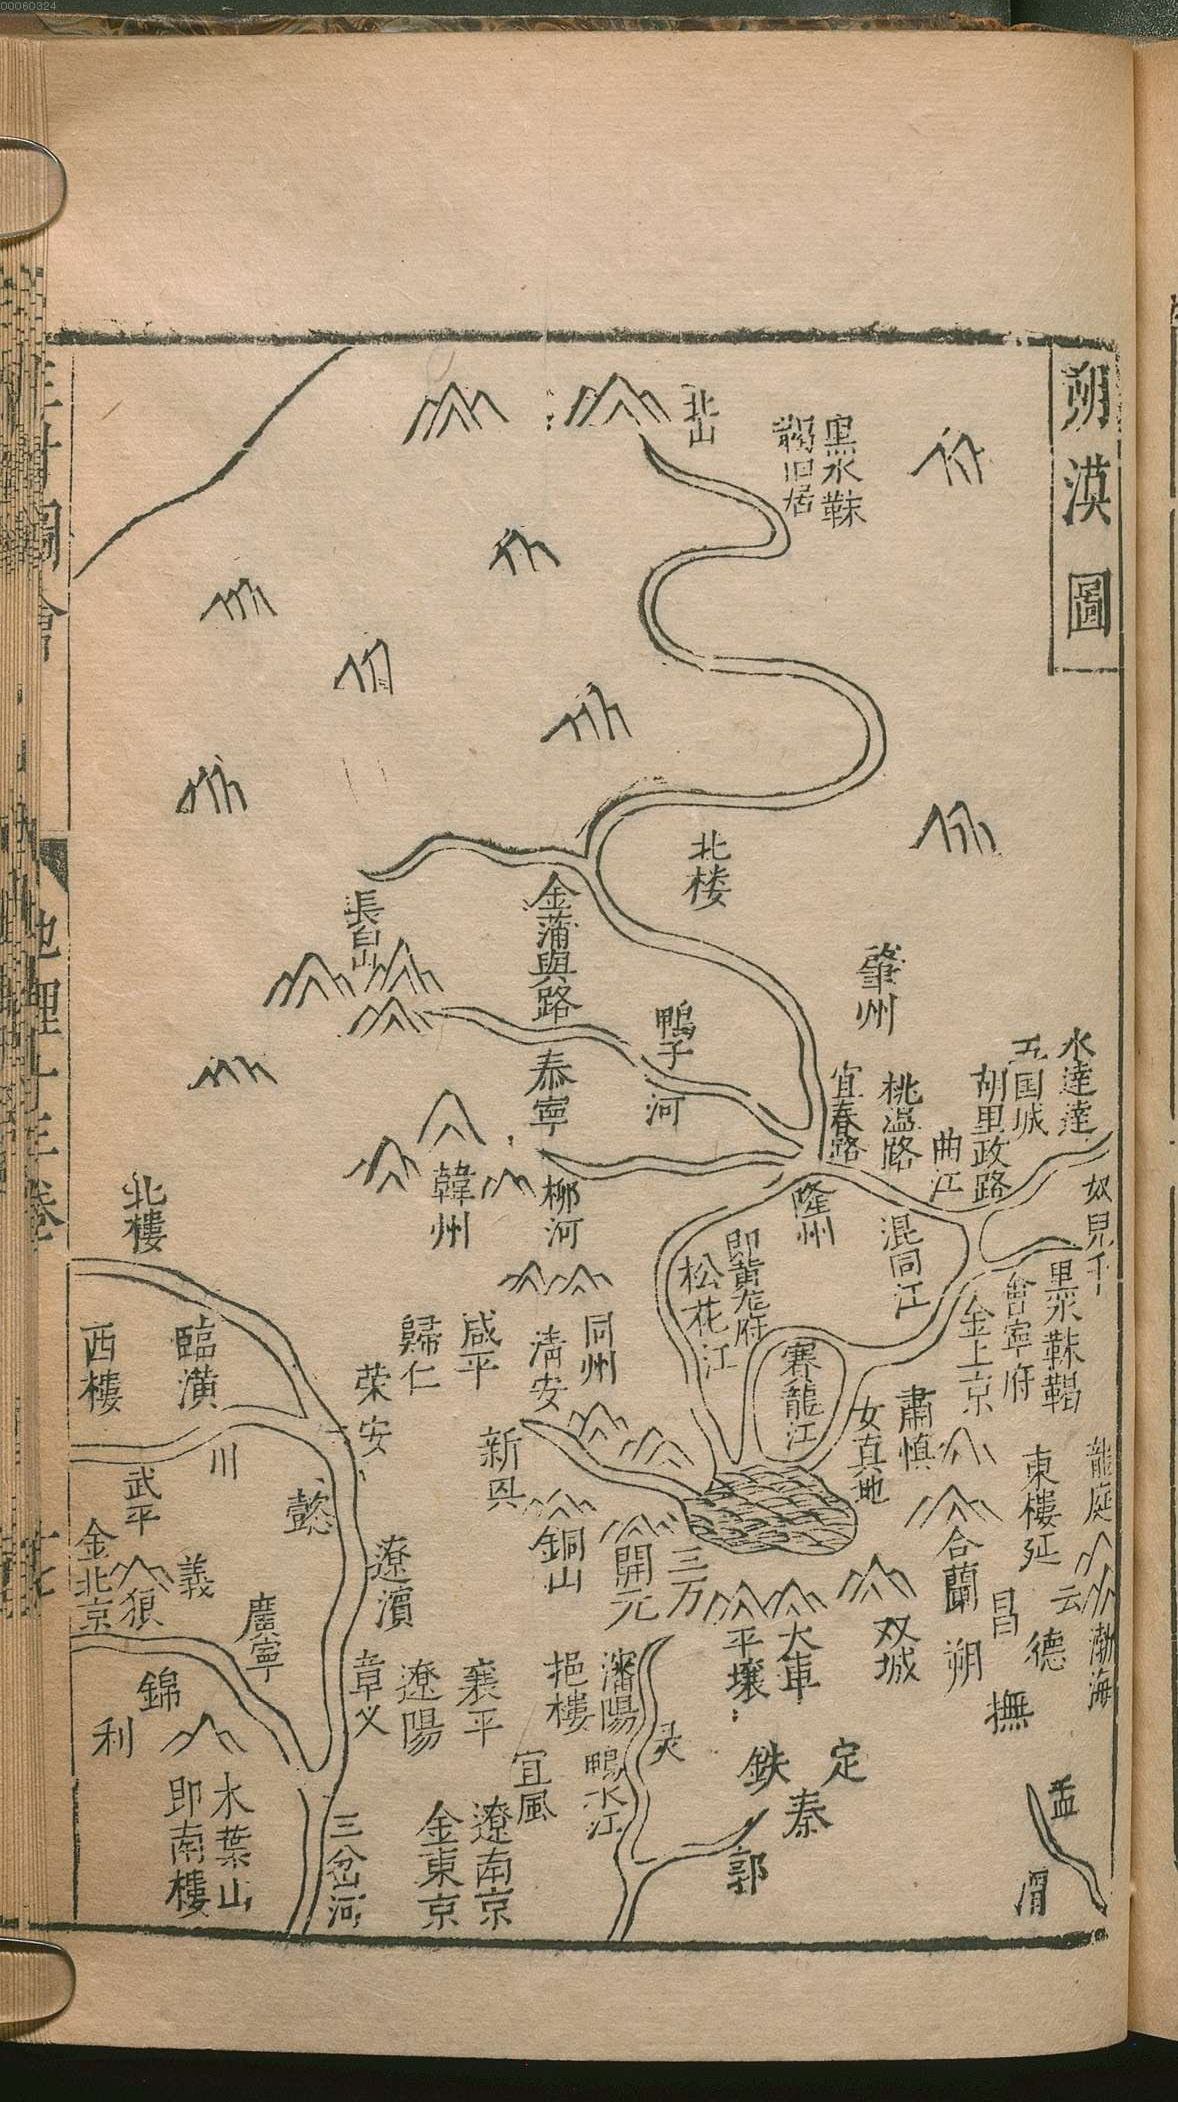 00060324
朔漠圖
黑水靺
鞨旧居
北山
北楼
肇州
水達達
五国城
胡里政路
曲江
桃温路
宜春路
奴兒干
黑水靺鞨
會寧府
金上京
混同江
隆州
即黄龙府
松花江
賽龍江
鴨子河
金蒲與路
泰寧
長白山
柳河
韓州
同州
清安
咸平
歸仁
荣安
新兴
銅山
開元
三万
肅慎
女真地
合蘭
東樓
延
龍庭
云
渤海
昌
德
朔
撫
双城
大車
平壤
定
鉄
秦
郭
孟
渭
灵
瀋陽
挹樓
鴨水江
宜風
襄平
遼陽
章义
遼濱
遼南京
金東京
三岔河
北樓
臨潢
西樓
川
武平
懿
金北京
狼
義
廣寧
錦
利
木葉山
即南樓
地理十三卷